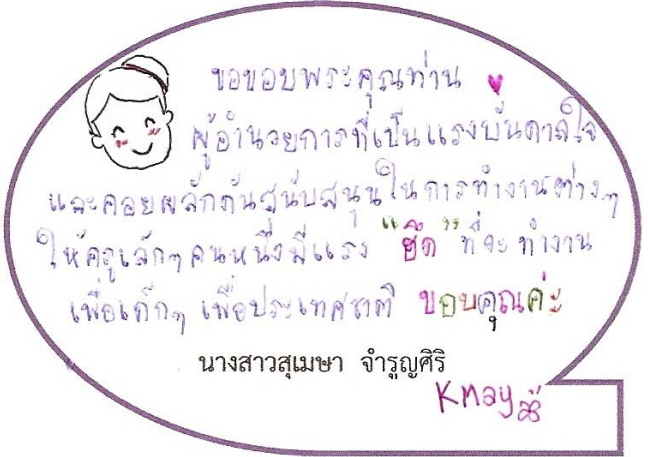 ขอขอบพระคุณท่าน
ผู้อำนวยการที่เป็นแรงบันดาลใจ
และคอยผลักดันสนับสนุนในการทำงานต่างๆ
ให้ครูเล็กๆ คนหนึ่งมีแรง "ฮึด" ที่จะทำงาน
เพื่อเด็กๆ เพื่อประเทศชาติ ขอบคุณค่ะ
นางสาวสุเมษา จำรูญศิริ
Kmay